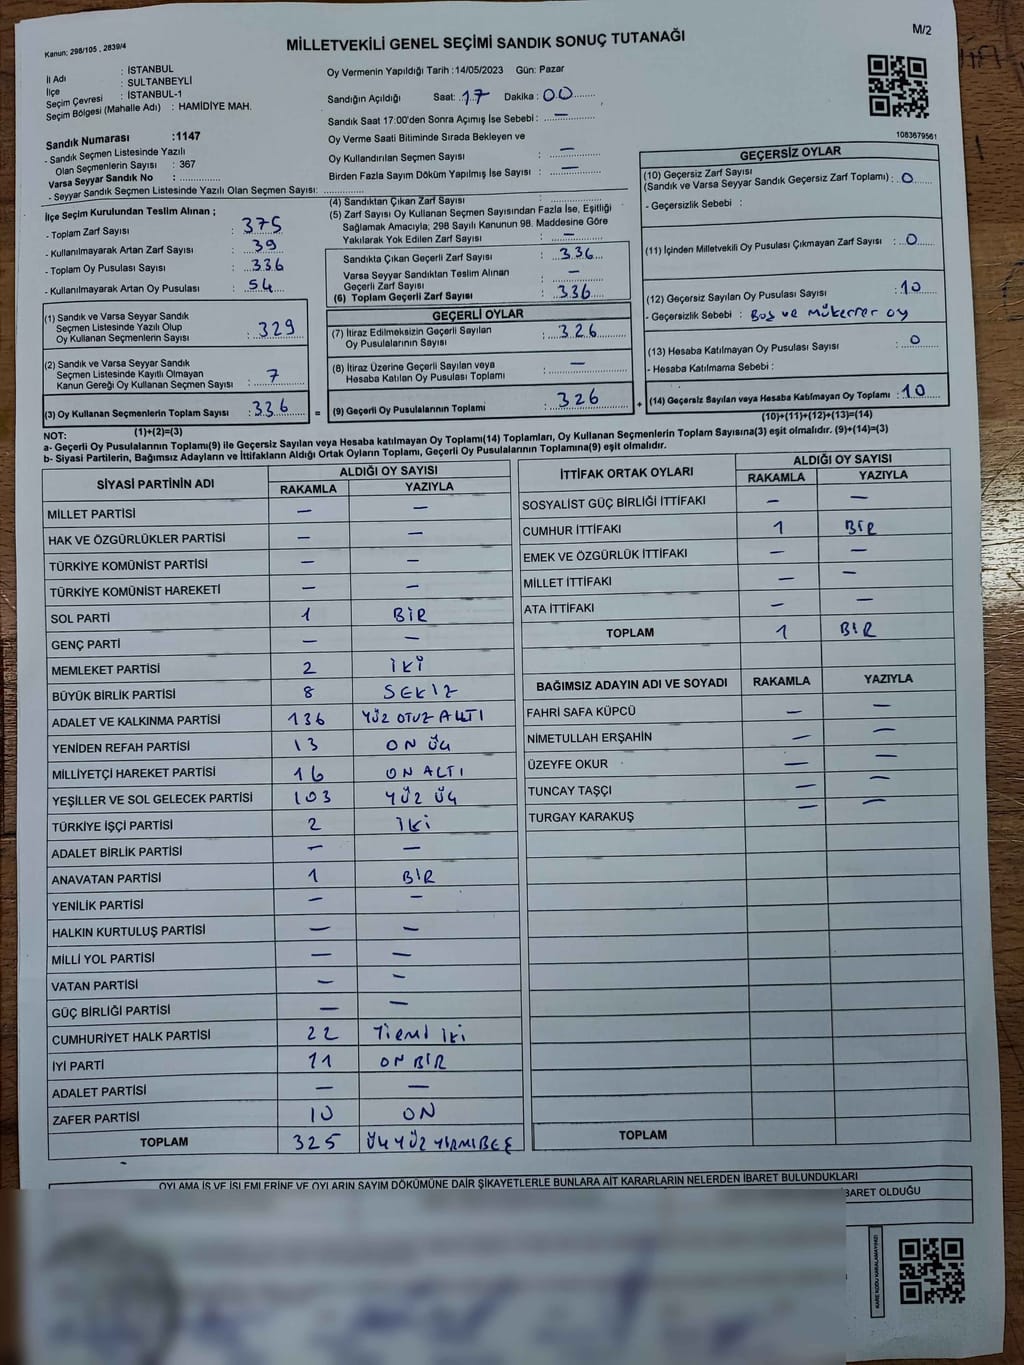 Kanun: 298/105 , 2839/4
MİLLETVEKİLİ GENEL SEÇİMİ SANDIK SONUÇ TUTANAĞI
M/2
İl Adı : İSTANBUL
İlçe : SULTANBEYLİ
Seçim Çevresi : İSTANBUL-1
Seçim Bölgesi (Mahalle Adı) : HAMİDİYE MAH.
Sandık Numarası :1147
- Sandık Seçmen Listesinde Yazılı
Olan Seçmenlerin Sayısı : 367
Varsa Seyyar Sandık No :
- Seyyar Sandık Seçmen Listesinde Yazılı Olan Seçmen Sayısı:
Oy Vermenin Yapıldığı Tarih :14/05/2023 Gün: Pazar
Sandığın Açıldığı Saat: 17 Dakika : 00
Sandık Saat 17:00'den Sonra Açımış İse Sebebi : —
Oy Verme Saati Bitiminde Sırada Bekleyen ve
Oy Kullandırılan Seçmen Sayısı : —
Birden Fazla Sayım Döküm Yapılmış İse Sayısı : —
1083679561
İlçe Seçim Kurulundan Teslim Alınan ;
- Toplam Zarf Sayısı : 375
- Kullanılmayarak Artan Zarf Sayısı : 39
- Toplam Oy Pusulası Sayısı : 336
- Kullanılmayarak Artan Oy Pusulası : 54
(1) Sandık ve Varsa Seyyar Sandık
Seçmen Listesinde Yazılı Olup
Oy Kullanan Seçmenlerin Sayısı : 329
(2) Sandık ve Varsa Seyyar Sandık
Seçmen Listesinde Kayıtlı Olmayan
Kanun Gereği Oy Kullanan Seçmen Sayısı : 7
(3) Oy Kullanan Seçmenlerin Toplam Sayısı : 336
(1)+(2)=(3)
(4) Sandıktan Çıkan Zarf Sayısı :
(5) Zarf Sayısı Oy Kullanan Seçmen Sayısından Fazla İse, Eşitliği
Sağlamak Amacıyla; 298 Sayılı Kanunun 98. Maddesine Göre
Yakılarak Yok Edilen Zarf Sayısı : —
Sandıkta Çıkan Geçerli Zarf Sayısı : 336
Varsa Seyyar Sandıktan Teslim Alınan
Geçerli Zarf Sayısı : —
(6) Toplam Geçerli Zarf Sayısı : 336
GEÇERLİ OYLAR
(7) İtiraz Edilmeksizin Geçerli Sayılan
Oy Pusulalarının Sayısı : 326
(8) İtiraz Üzerine Geçerli Sayılan veya
Hesaba Katılan Oy Pusulası Toplamı : —
= (9) Geçerli Oy Pusulalarının Toplamı : 326 +
GEÇERSİZ OYLAR
(10) Geçersiz Zarf Sayısı
(Sandık ve Varsa Seyyar Sandık Geçersiz Zarf Toplamı) : 0
- Geçersizlik Sebebi :
(11) İçinden Milletvekili Oy Pusulası Çıkmayan Zarf Sayısı : 0
(12) Geçersiz Sayılan Oy Pusulası Sayısı : 10
- Geçersizlik Sebebi : Boş ve Mükerrer oy
(13) Hesaba Katılmayan Oy Pusulası Sayısı : 0
- Hesaba Katılmama Sebebi :
(14) Geçersiz Sayılan veya Hesaba Katılmayan Oy Toplamı : 10
(10)+(11)+(12)+(13)=(14)
NOT:
a- Geçerli Oy Pusulalarının Toplamı(9) ile Geçersiz Sayılan veya Hesaba katılmayan Oy Toplamı(14) Toplamları, Oy Kullanan Seçmenlerin Toplam Sayısına(3) eşit olmalıdır. (9)+(14)=(3)
b- Siyasi Partilerin, Bağımsız Adayların ve İttifakların Aldığı Ortak Oyların Toplamı, Geçerli Oy Pusulalarının Toplamına(9) eşit olmalıdır.
SİYASİ PARTİNİN ADI ALDIĞI OY SAYISI
RAKAMLA YAZIYLA
MİLLET PARTİSİ — —
HAK VE ÖZGÜRLÜKLER PARTİSİ — —
TÜRKİYE KOMÜNİST PARTİSİ — —
TÜRKİYE KOMÜNİST HAREKETİ — —
SOL PARTİ 1 BİR
GENÇ PARTİ — —
MEMLEKET PARTİSİ 2 İKİ
BÜYÜK BİRLİK PARTİSİ 8 SEKİZ
ADALET VE KALKINMA PARTİSİ 136 YÜZ OTUZ ALTI
YENİDEN REFAH PARTİSİ 13 ON ÜÇ
MİLLİYETÇİ HAREKET PARTİSİ 16 ON ALTI
YEŞİLLER VE SOL GELECEK PARTİSİ 103 YÜZ ÜÇ
TÜRKİYE İŞÇİ PARTİSİ 2 İKİ
ADALET BİRLİK PARTİSİ — —
ANAVATAN PARTİSİ 1 BİR
YENİLİK PARTİSİ — —
HALKIN KURTULUŞ PARTİSİ — —
MİLLİ YOL PARTİSİ — —
VATAN PARTİSİ — —
GÜÇ BİRLİĞİ PARTİSİ — —
CUMHURİYET HALK PARTİSİ 22 Yirmi iki
İYİ PARTİ 11 ON BİR
ADALET PARTİSİ — —
ZAFER PARTİSİ 10 ON
TOPLAM 325 ÜÇ YÜZ YİRMİBEŞ
İTTİFAK ORTAK OYLARI ALDIĞI OY SAYISI
RAKAMLA YAZIYLA
SOSYALİST GÜÇ BİRLİĞİ İTTİFAKI — —
CUMHUR İTTİFAKI 1 BİR
EMEK VE ÖZGÜRLÜK İTTİFAKI — —
MİLLET İTTİFAKI — —
ATA İTTİFAKI — —
TOPLAM 1 BİR
BAĞIMSIZ ADAYIN ADI VE SOYADI RAKAMLA YAZIYLA
FAHRİ SAFA KÜPCÜ — —
NİMETULLAH ERŞAHİN — —
ÜZEYFE OKUR — —
TUNCAY TAŞÇI — —
TURGAY KARAKUŞ — —
TOPLAM
OYLAMA İŞ VE İŞLEMLERİNE VE OYLARIN SAYIM DÖKÜMÜNE DAİR ŞİKAYETLERLE BUNLARA AİT KARARLARIN NELERDEN İBARET BULUNDUKLARI
BARET OLDUĞU
KARE KODU KARALAMAYINIZ!